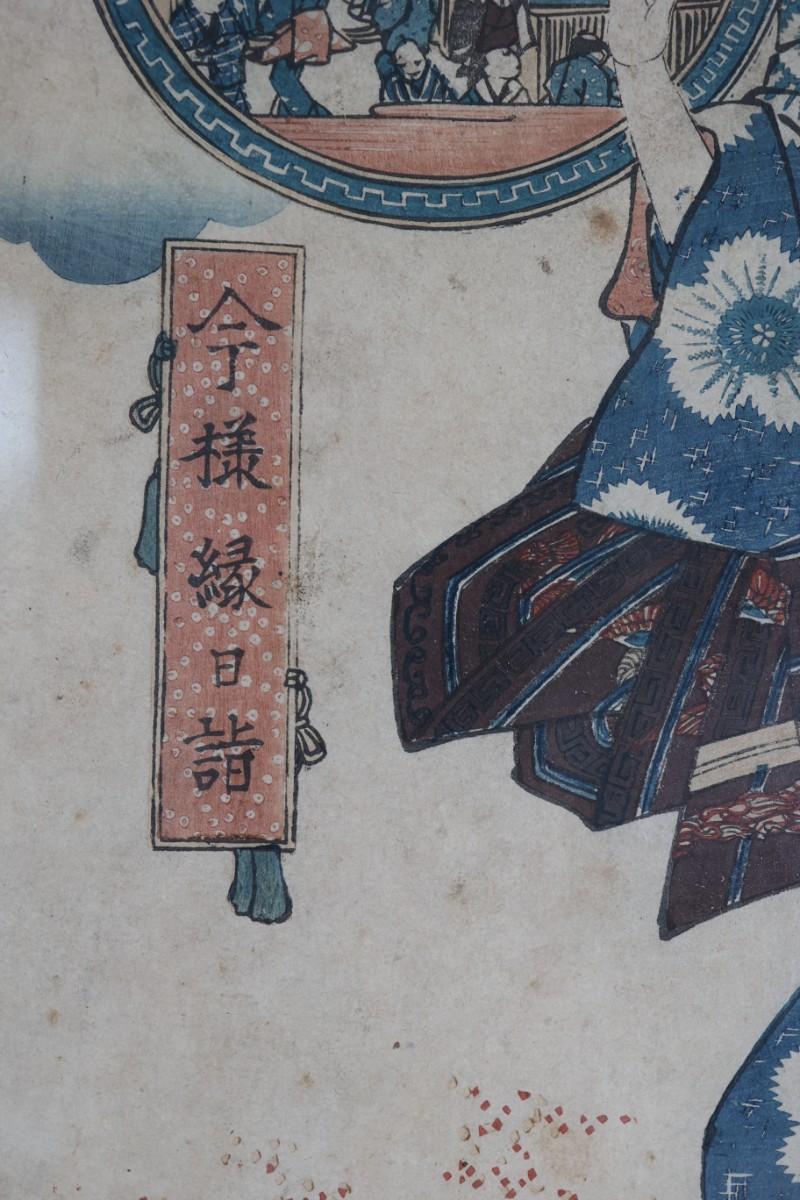 今様縁日詣